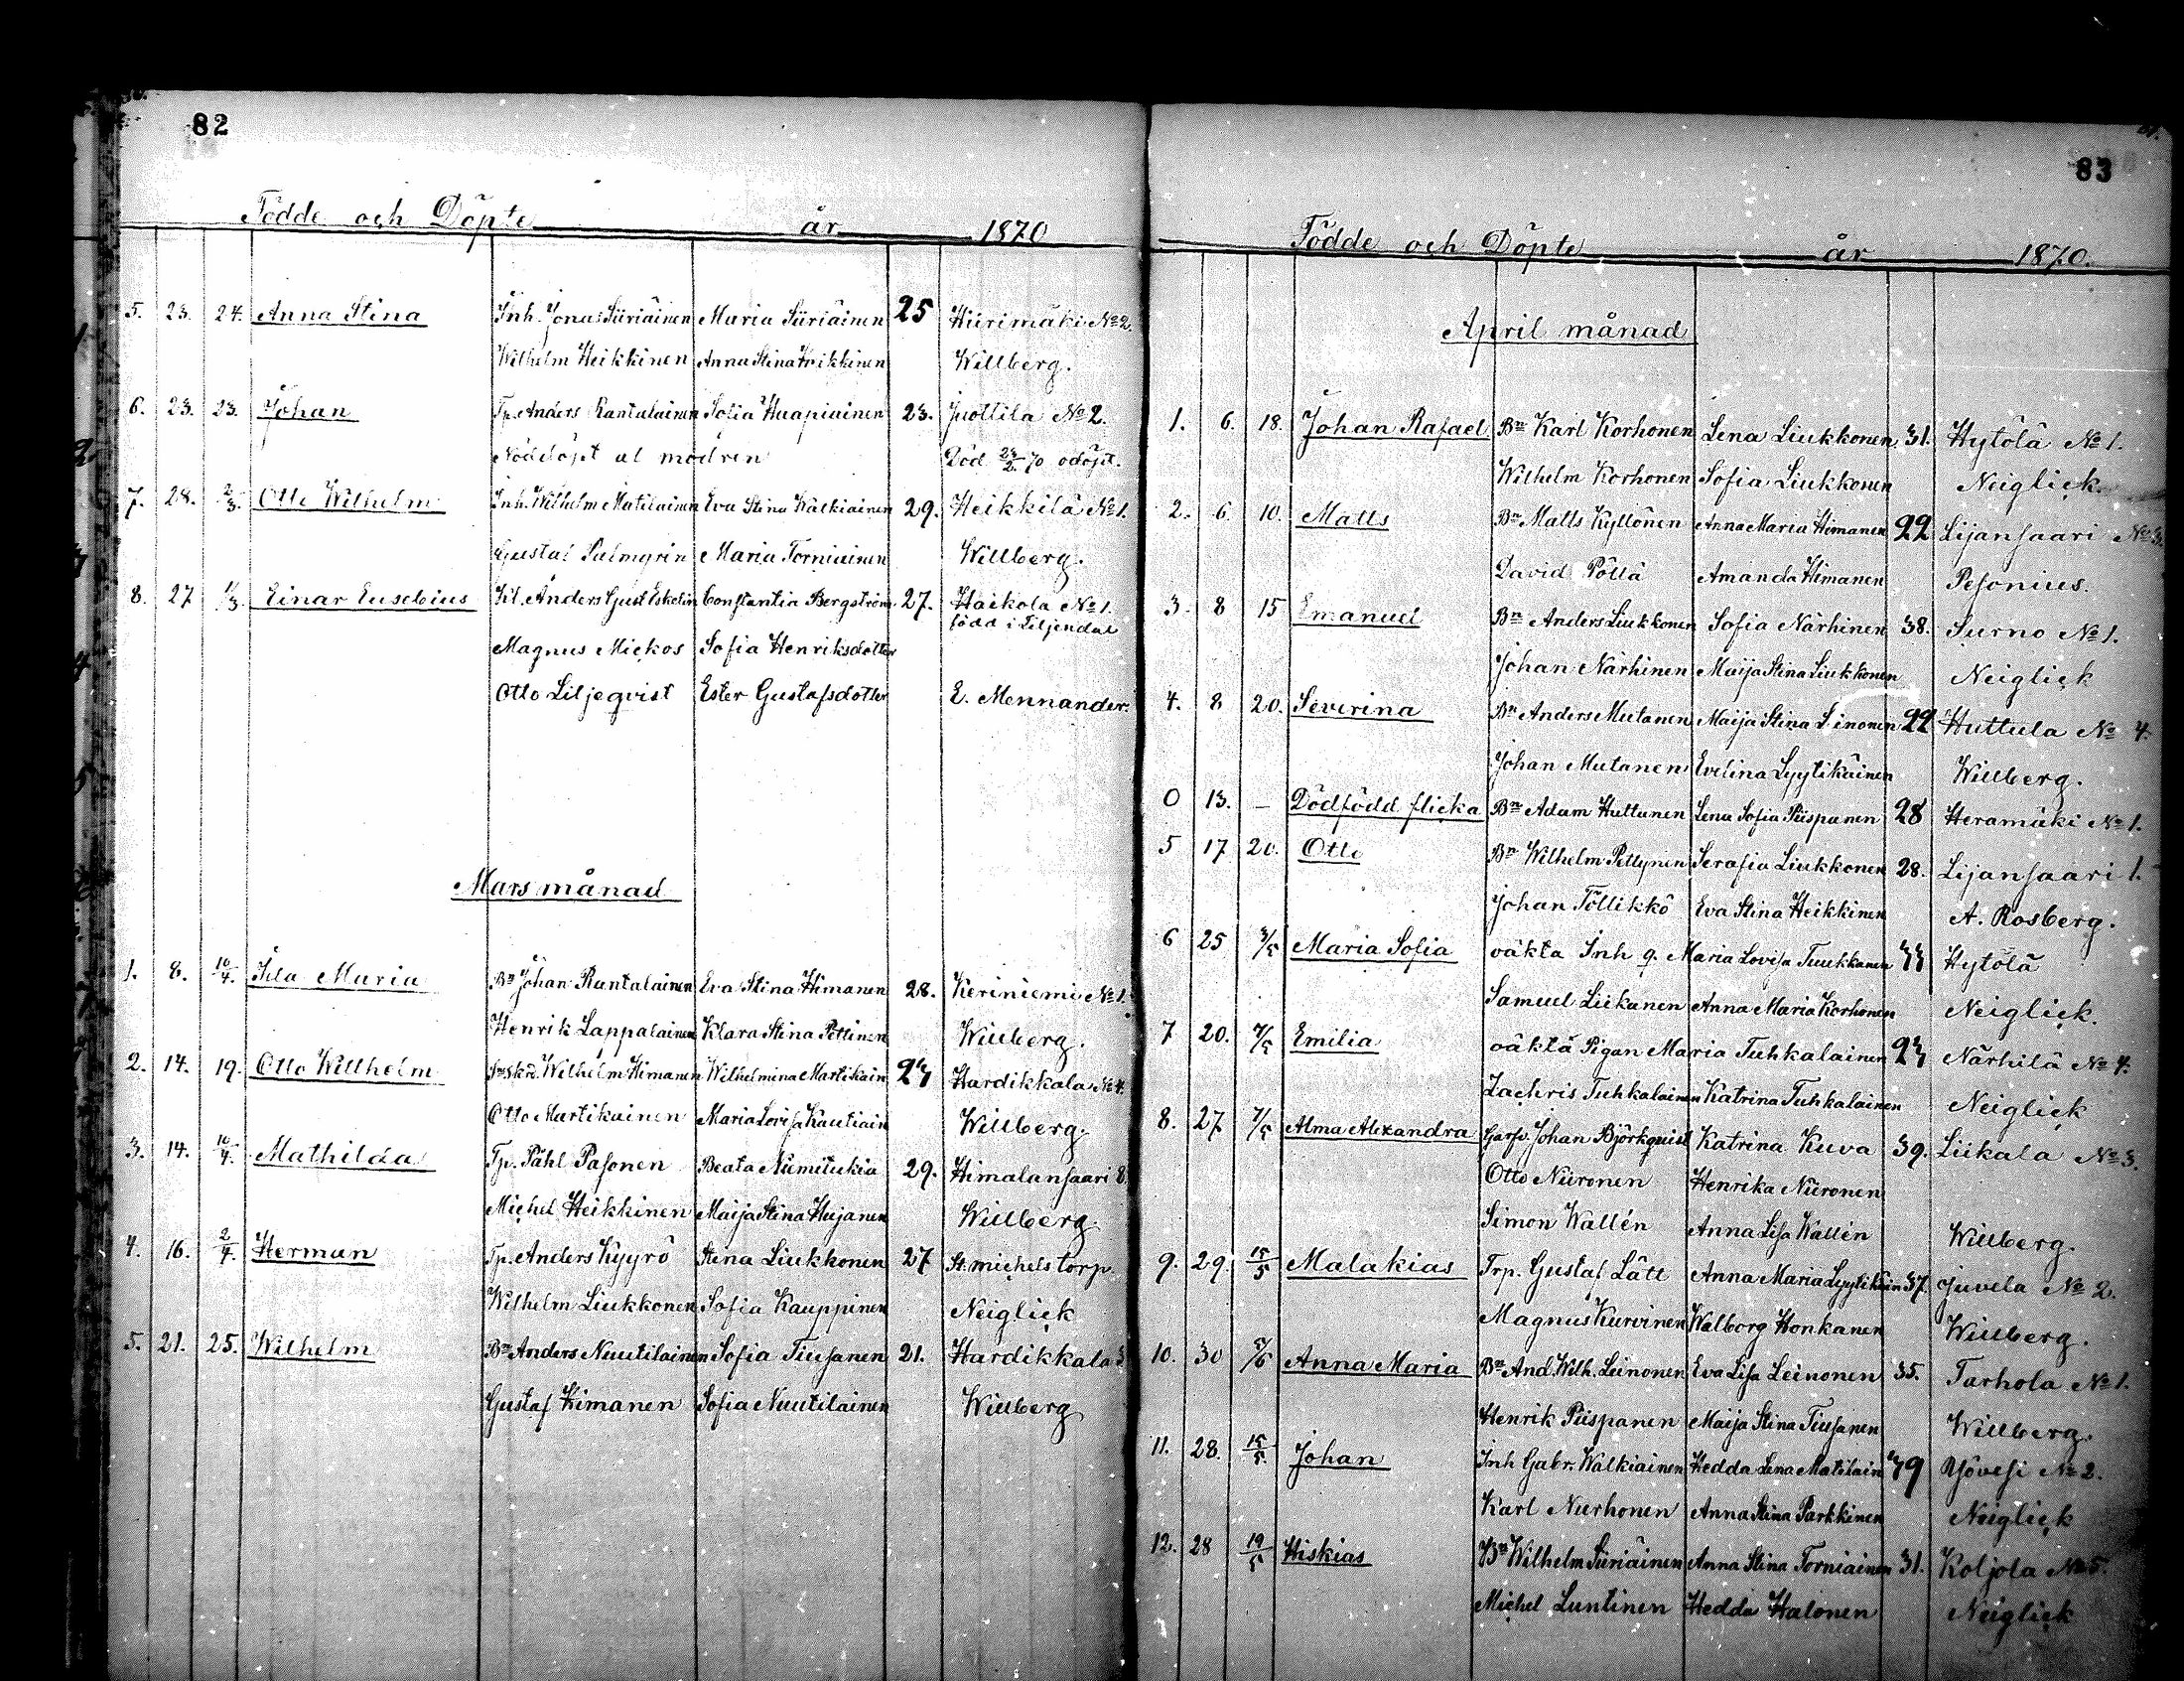 82
Födde och Döpte år 1870
5. 23. 24. Anna Stina Inh. Jonas Siiriäinen Maria Siiriäinen 25 Hiirimäki No 2.
Wilhelm Heikkinen Anna Stina Heikkinen Willberg.
6. 23. 23. Johan Tp. Anders Rantalainen Sofia Haapiainen 23. Juottila No 2.
Nöddöpt af modren Död 24/2 70 odöpt.
7. 28. 2/3. Otto Wilhelm Inh. Wilhelm Matilainen Eva Stina Walkiainen 29. Heikkilä No 1.
Gustaf Palmgrin Maria Torniainen Willberg.
8. 27 1/3 Einar Eusebius Anders Gust Eskolin Constantia Bergström 27. Haikola No 1.
född i Liljendal
Magnus Mickos Sofia Henriksdotter
Otto Liljeqvist Ester Gustafsdotter E. Mennander.
Mars månad
1. 8. 10/4. Ida Maria Bn Johan Rantalainen Eva Stina Himanen 28. Keriniemi No 1.
Henrik Lappalainen Klara Stina Pettinen Willberg.
2. 14. 19. Otto Willhelm Wilhelm Himanen Wilhelmina Martikain Hardikkala No 4.
Otto Martikainen Maria Lovisa Kautiain Willberg.
3. 14. 10/4. Mathilda Tp. Påhl Pasonen Beata Niemitukia 29. Himalansaari 8
Michel Heikkinen Maija Stina Hujanen Willberg
4. 16. 2/4. Herman Tp. Anders Kyyrö Stina Liukkonen 27 St. michels torp.
Wilhelm Liukkonen Sofia Kauppinen Neiglick
5. 21. 25. Wilhelm Bn Anders Nuutilainen Sofia Tiusanen 21. Hardikkala 3
Gustaf Himanen Sofia Nuutilainen Willberg
83
Födde och Döpte år 1870.
April månad
1. 6. 18. Johan Rafael Bn Karl Korhonen Lena Liukkonen 31. Hytölä No 1.
Wilhelm Korhonen Sofia Liukkonen Neiglick.
2. 6. 10. Matts Bn Matts Kyllönen Anna Maria Himanen 22 Lijansaari No 3.
David Pöllä Amanda Himanen Pesonius.
3. 8 15 Emanuel Bn Anders Liukkonen Sofia Närhinen 38. Surno No 1.
Johan Närhinen Maija Stina Liukkonen Neiglick
4. 8 20. Severina Bn Anders Mutanen Maija Stina Linonen 22 Huttula No 4.
Johan Mutanen Evelina Lyytikäinen Willberg.
0 13. — Dödfödd flicka Bn Adam Huttunen Lena Sofia Piispanen 28 Heramäki No 1.
5 17 20. Otto Bn Wilhelm Pettynen Serafia Liukkonen 28. Lijansaari 1.
Johan Töllikkö Eva Stina Heikkinen A. Rosberg.
6 25 3/5 Maria Sofia oäkta Inh q. Maria Lovisa Tuukkanen Hytölä
Samuel Liekanen Anna Maria Korhonen Neiglick.
7 20. 7/5 Emilia oäkta Pigan Maria Tuhkalainen Närhilä No 4.
Zachris Tuhkalainen Katrina Tuhkalainen Neiglick
8. 27 7/5 Alma Alexandra Garfv. Johan Björkquist Katrina Kuva 39. Liikala No 3.
Otto Niironen Henrika Niironen
Simon Wallén Anna Lisa Wallén Willberg.
9. 29. 15/5 Malakias Trp. Gustaf Lätt Anna Maria Lyytikäin 37. Juvela No 2.
Magnus Kurvinen Walborg Honkanen Willberg.
10. 30 5/6 Anna Maria Bn And. Wilh. Leinonen Eva Lisa Leinonen 35. Tarhola No 1.
Henrik Piispanen Maija Stina Tiusanen Willberg.
11. 28. 15/5. Johan Inh Gabr. Walkiainen Hedda Lena Matilain No 2.
Karl Nurhonen Anna Stina Parkkinen Neiglick
12. 28 19/5 Hiskias Bn Wilhelm Siiriäinen Anna Stina Torniainen 31. Koljola No 5.
Michel Luntinen Hedda Halonen Neiglick